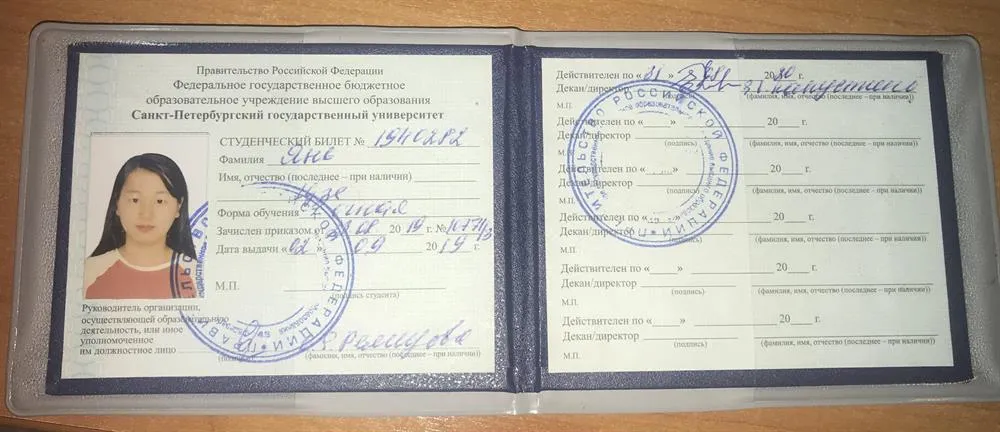 Правительство Российской Федерации
Федеральное государственное бюджетное
образовательное учреждение высшего образования
Санкт-Петербургский государственный университет
СТУДЕНЧЕСКИЙ БИЛЕТ №
Фамилия Янь
Имя, отчество (последнее – при наличии)
Форма обучения очная
Зачислен приказом от 08 2019 г. №
Дата выдачи «02» 09 2019 г.
М.П.
(подпись студента)
Руководитель организации,
осуществляющей образовательную
деятельность, или иное
уполномоченное
им должностное лицо
(подпись) (фамилия, имя, отчество (последнее – при наличии)
Действителен по «31» 08 2020
Декан/директор
М.П. (подпись) (фамилия, имя, отчество (последнее – при наличии)
Действителен по « » 20 г.
Декан/директор
М.П. (фамилия, имя, отчество (последнее – при наличии)
Действителен по « » 20 г.
Декан/директор
М.П. (фамилия, имя, отчество (последнее – при наличии)
Действителен по « » 20 г.
Декан/директор
М.П. (фамилия, имя, отчество (последнее – при наличии)
Действителен по « » 20 г.
Декан/директор
М.П. (подпись) (фамилия, имя, отчество (последнее – при наличии)
Действителен по « » 20 г.
Декан/директор
М.П. (подпись) (фамилия, имя, отчество (последнее – при наличии)